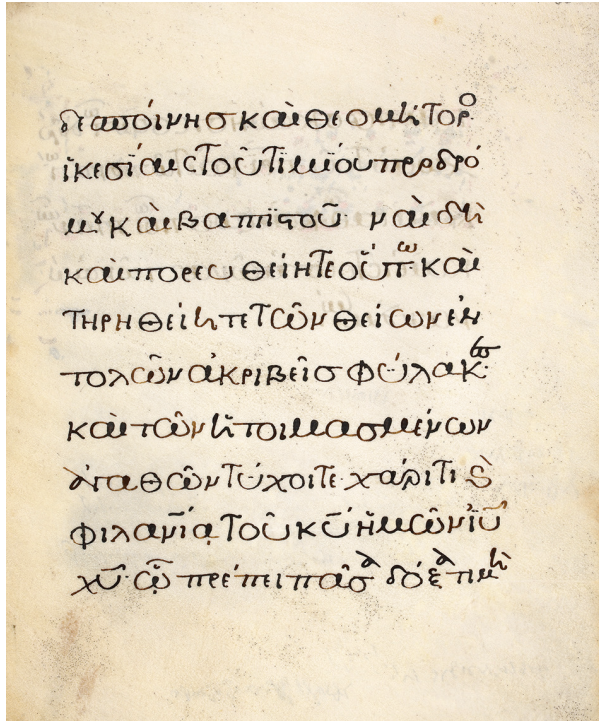 δεσποίνης καὶ θεομήτορο
ἱκεσίαις τοῦ τιμίου προδρό
μου καὶ βαπτιστοῦ· ναὶ δὴ
καὶ πορευθείητε οὕτω καὶ
τηρηθείητε τῶν θείων ἐν
τολῶν ἀκριβεῖς φύλακ
καὶ τῶν ἡτοιμασμένων
ἀγαθῶν τύχοιτε· χάριτι καὶ
φιλανίᾳ τοῦ κυ ἡμῶν ιυ
χυ· ᾧ πρέπει πᾶσα δόξα τιμὴ